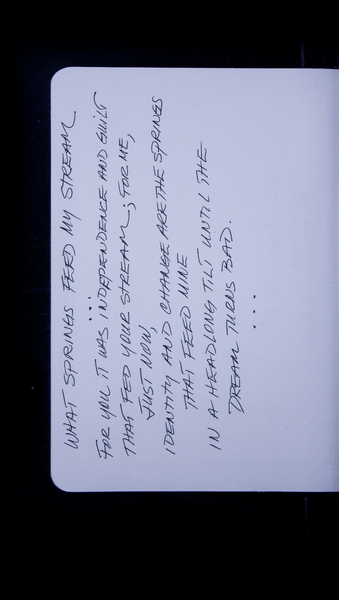 WHAT SPRINGS FEED MY STREAM
...
FOR YOU IT WAS INDEPENDENCE AND GUILT
THAT FED YOUR STREAM; FOR ME,
JUST NOW,
IDENTITY AND CHANGE ARE THE SPRINGS
THAT FEED MINE
IN A HEADLONG TILT UNTIL THE
DREAM TURNS BAD.
....